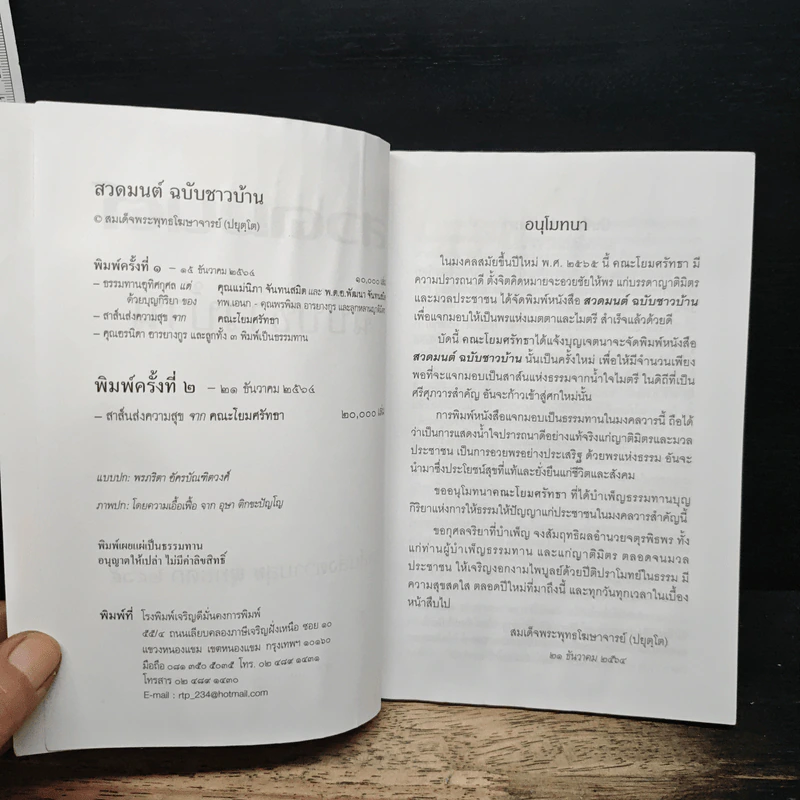 สวดมนต์ ฉบับชาวบ้าน
© สมเด็จพระพุทธโฆษาจารย์ (ปยุตฺโต)
พิมพ์ครั้งที่ ๑ – ๑๕ ธันวาคม ๒๕๖๔ ๑๐,๐๐๐
– ธรรมทานอุทิศกุศล แด่ คุณแม่นิภา จันทนสมิต และ พ.ต.อ.พัฒนา
ด้วยบุญกิริยา ของ ทพ.เอนก - คุณพรพิมล อารยางกูร และลูกหลานญาติมิตร
– สาส์นส่งความสุข จาก คณะโยมศรัทธา
– คุณอรนิดา อารยางกูร และลูกทั้ง ๓ พิมพ์เป็นธรรมทาน
พิมพ์ครั้งที่ ๒ – ๒๑ ธันวาคม ๒๕๖๔
– สาส์นส่งความสุข จาก คณะโยมศรัทธา ๒๐,๐๐๐ เล่ม
แบบปก: พรภริตา อัครบัณฑิตวงศ์
ภาพปก: โดยความเอื้อเฟื้อ จาก อุษา ติกขะปัญโญ
พิมพ์เผยแผ่เป็นธรรมทาน
อนุญาตให้เปล่า ไม่มีค่าลิขสิทธิ์
พิมพ์ที่ โรงพิมพ์เจริญดีมั่นคงการพิมพ์
๕๕/๔ ถนนเลียบคลองภาษีเจริญฝั่งเหนือ ซอย ๑๐
แขวงหนองแขม เขตหนองแขม กรุงเทพฯ ๑๐๑๖๐
มือถือ ๐๘๑ ๓๕๐ ๕๐๓๕ โทร. ๐๒ ๔๘๙ ๑๔๓๑
โทรสาร ๐๒ ๔๘๙ ๑๔๓๐
E-mail : rtp_234@hotmail.com
อนุโมทนา
ในมงคลสมัยขึ้นปีใหม่ พ.ศ. ๒๕๖๕ นี้ คณะโยมศรัทธา มี
ความปรารถนาดี ตั้งจิตคิดหมายจะอวยชัยให้พร แก่บรรดาญาติมิตร
และมวลประชาชน ได้จัดพิมพ์หนังสือ สวดมนต์ ฉบับชาวบ้าน
เพื่อแจกมอบให้เป็นพรแห่งเมตตาและไมตรี สำเร็จแล้วด้วยดี
บัดนี้ คณะโยมศรัทธาได้แจ้งบุญเจตนาจะจัดพิมพ์หนังสือ
สวดมนต์ ฉบับชาวบ้าน นั้นเป็นครั้งใหม่ เพื่อให้มีจำนวนเพียง
พอที่จะแจกมอบเป็นสาส์นแห่งธรรมจากน้ำใจไมตรี ในดิถีที่เป็น
ศรีศุภวารสำคัญ อันจะก้าวเข้าสู่ศกใหม่นั้น
การพิมพ์หนังสือแจกมอบเป็นธรรมทานในมงคลวารนี้ ถือได้
ว่าเป็นการแสดงน้ำใจปรารถนาดีอย่างแท้จริงแก่ญาติมิตรและมวล
ประชาชน เป็นการอวยพรอย่างประเสริฐ ด้วยพรแห่งธรรม อันจะ
นำมาซึ่งประโยชน์สุขที่แท้และยั่งยืนแก่ชีวิตและสังคม
ขออนุโมทนาคณะโยมศรัทธา ที่ได้บำเพ็ญธรรมทานบุญ
กิริยาแห่งการให้ธรรมให้ปัญญาแก่ประชาชนในมงคลวารสำคัญนี้
ขอกุศลจริยาที่บำเพ็ญ จงสัมฤทธิผลอำนวยจตุรพิธพร ทั้ง
แก่ท่านผู้บำเพ็ญธรรมทาน และแก่ญาติมิตร ตลอดจนมวล
ประชาชน ให้เจริญงอกงามไพบูลย์ด้วยปีติปราโมทย์ในธรรม มี
ความสุขสดใส ตลอดปีใหม่ที่มาถึงนี้ และทุกวันทุกเวลาในเบื้อง
หน้าสืบไป
สมเด็จพระพุทธโฆษาจารย์ (ปยุตฺโต)
๒๑ ธันวาคม ๒๕๖๔